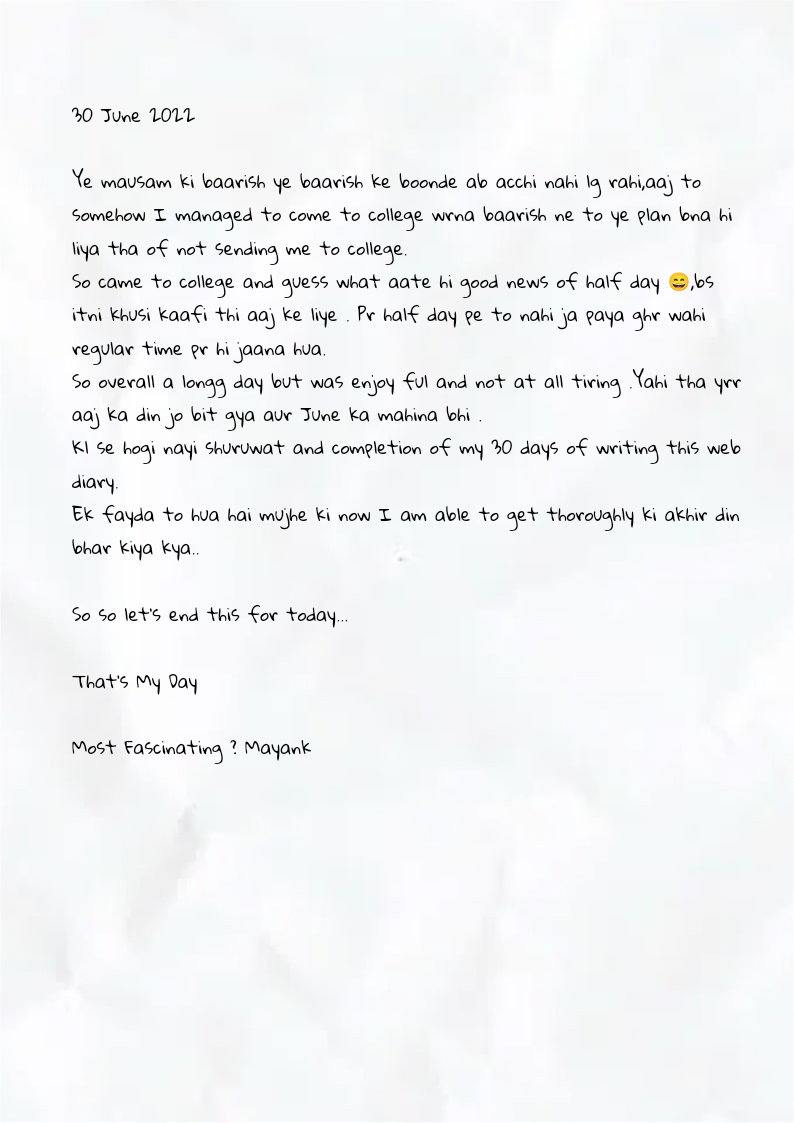 30 June 2022
Ye mausam ki baarish ye baarish ke boonde ab acchi nahi lg rahi,aaj to
somehow I managed to come to college wrna baarish ne to ye plan bna hi
liya tha of not sending me to college.
So came to college and guess what aate hi good news of half day 😄,bs
itni khusi kaafi thi aaj ke liye . Pr half day pe to nahi ja paya ghr wahi
regular time pr hi jaana hua.
So overall a longg day but was enjoy ful and not at all tiring .Yahi tha yrr
aaj ka din jo bit gya aur June ka mahina bhi .
Kl se hogi nayi shuruwat and completion of my 30 days of writing this web
diary.
Ek fayda to hua hai mujhe ki now I am able to get thoroughly ki akhir din
bhar kiya kya..
So so let's end this for today...
That's My Day
Most Fascinating ? Mayank